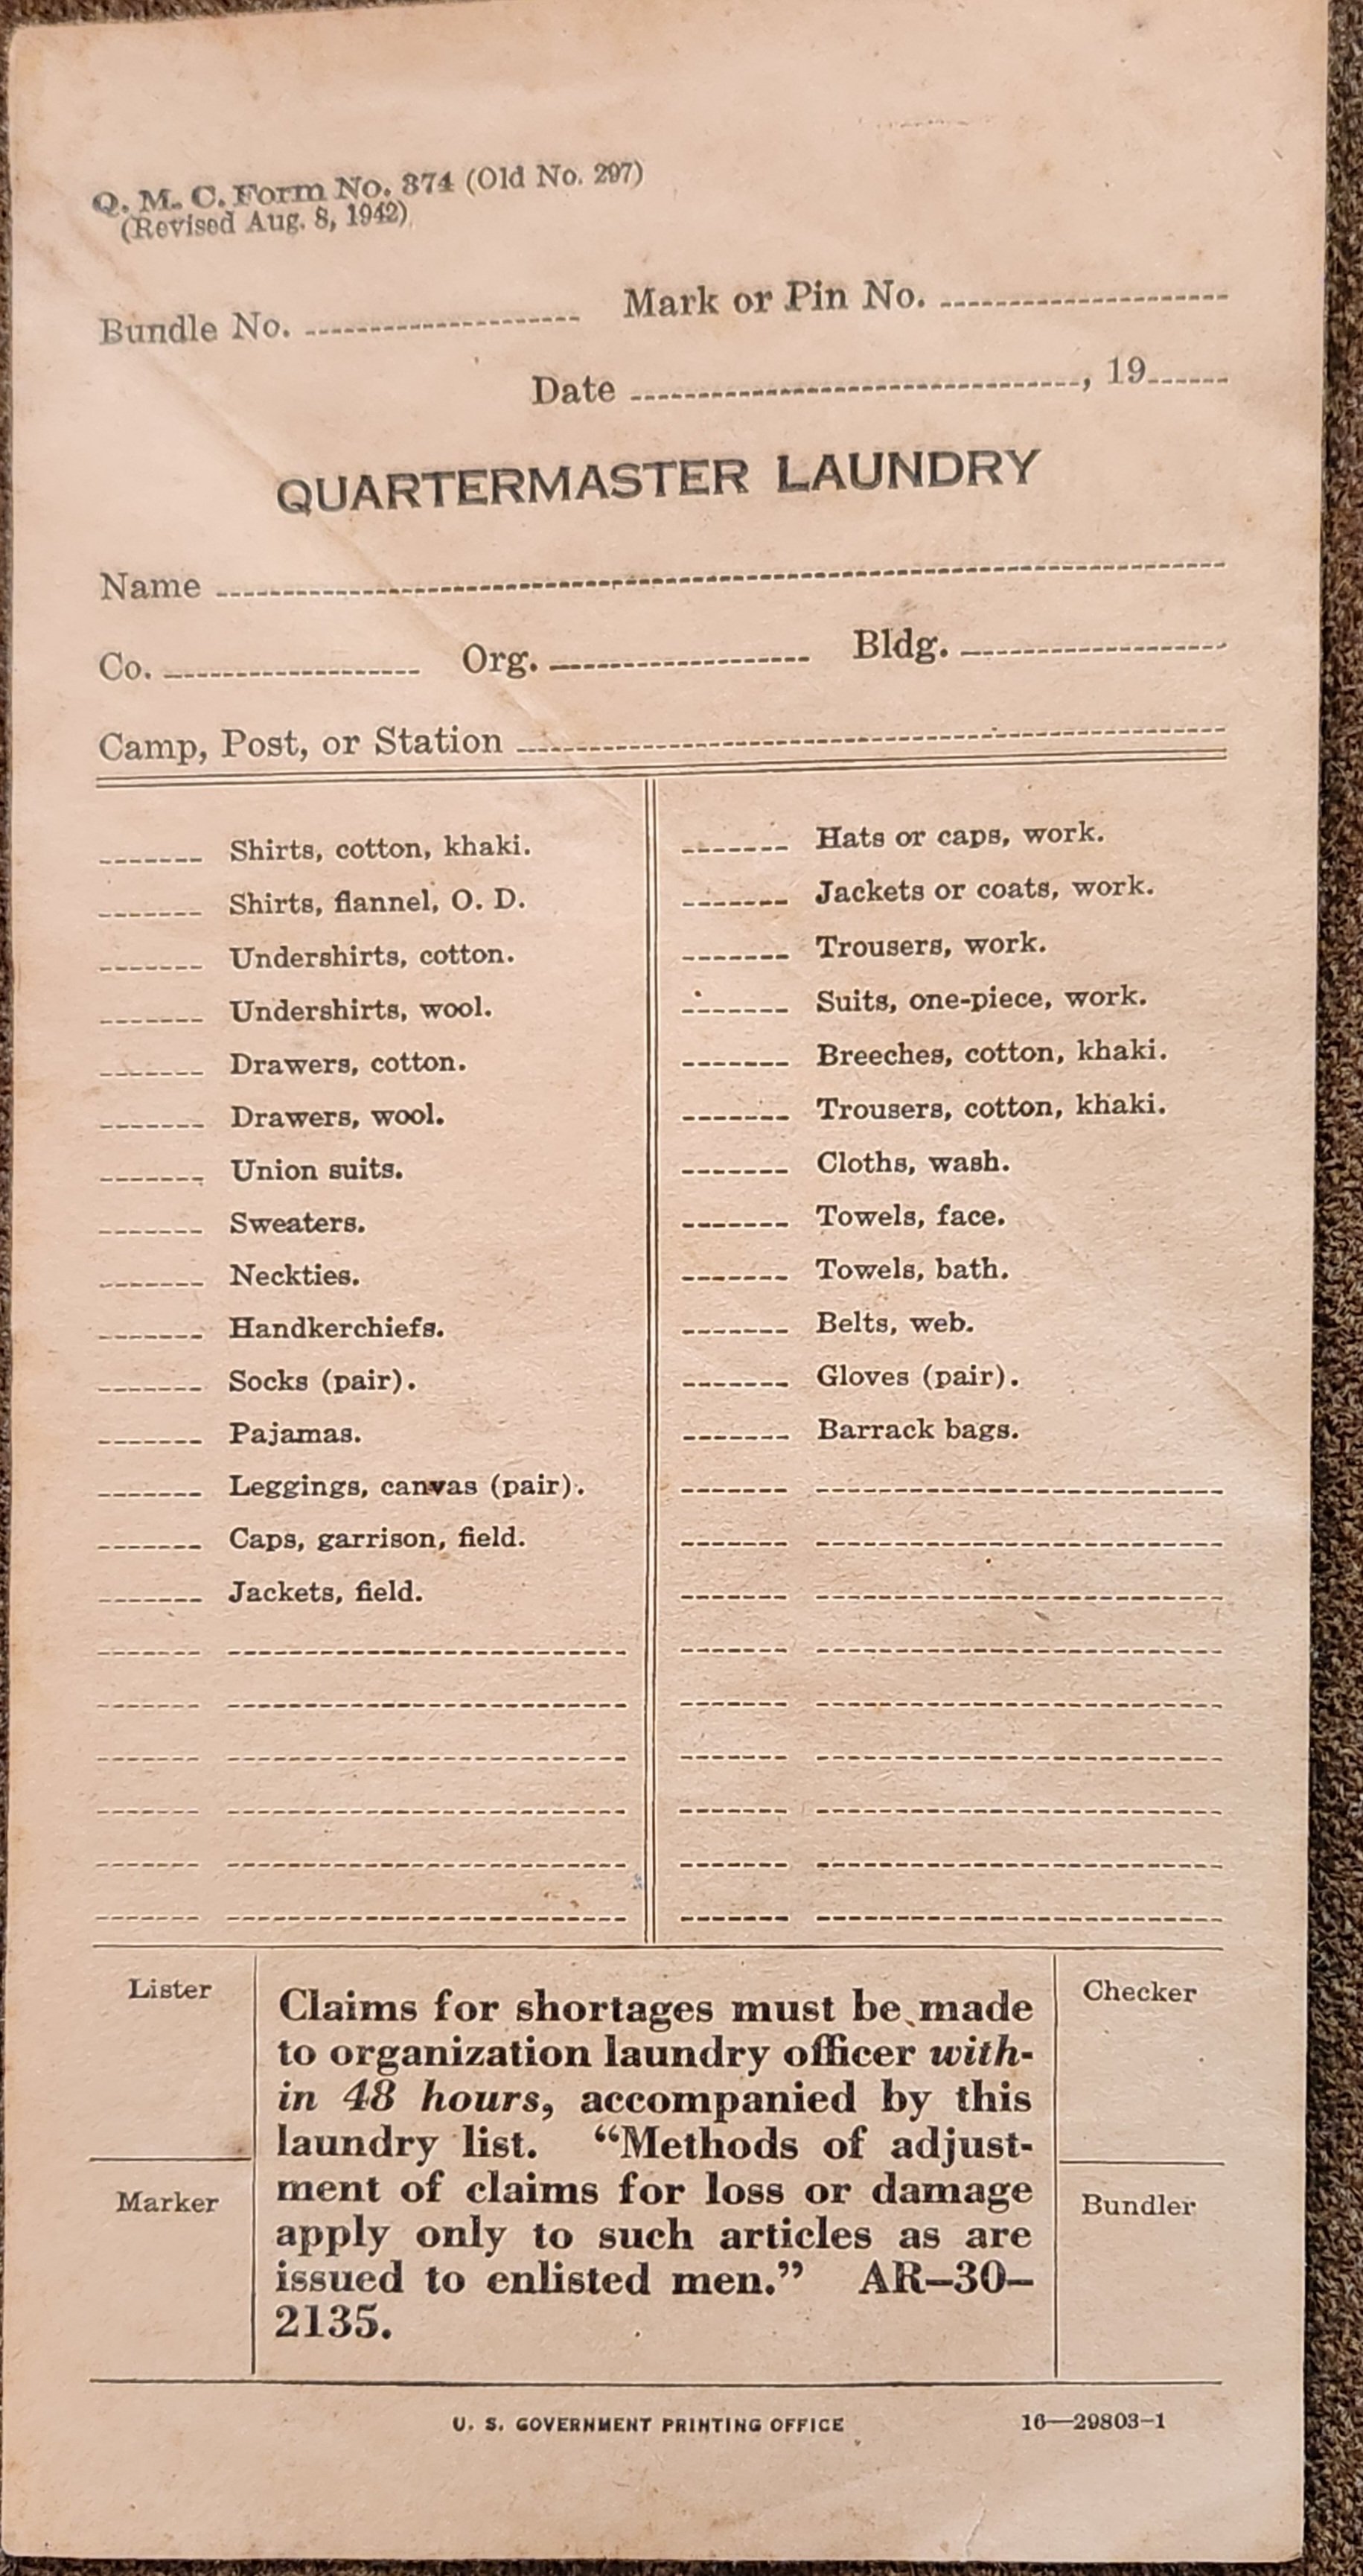 Q. M. C. Form No. 374 (Old No. 297)
(Revised Aug. 8, 1942)
Bundle No. Mark or Pin No.
Date , 19
QUARTERMASTER LAUNDRY
Name
Co. Org. Bldg.
Camp, Post, or Station
Shirts, cotton, khaki.
Shirts, flannel, O. D.
Undershirts, cotton.
Undershirts, wool.
Drawers, cotton.
Drawers, wool.
Union suits.
Sweaters.
Neckties.
Handkerchiefs.
Socks (pair).
Pajamas.
Leggings, canvas (pair).
Caps, garrison, field.
Jackets, field.
Hats or caps, work.
Jackets or coats, work.
Trousers, work.
Suits, one-piece, work.
Breeches, cotton, khaki.
Trousers, cotton, khaki.
Cloths, wash.
Towels, face.
Towels, bath.
Belts, web.
Gloves (pair).
Barrack bags.
Lister
Marker
Claims for shortages must be made
to organization laundry officer with-
in 48 hours, accompanied by this
laundry list. “Methods of adjust-
ment of claims for loss or damage
apply only to such articles as are
issued to enlisted men.” AR–30–
2135.
Checker
Bundler
U. S. GOVERNMENT PRINTING OFFICE 16—29803-1